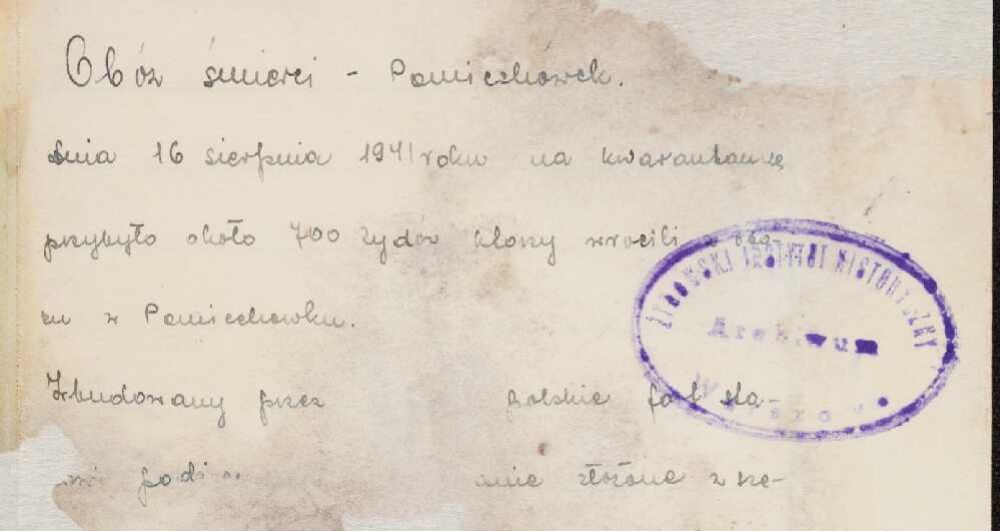 Obóz śmierci - Pomiechowek.
dnia 16 sierpnia 1941 roku na kwarantannę
przybyło około 700 żydów którzy wrócili z obo
zu w Pomiechowku.
Zbudowany przez polskie fort sta-
złożone z sze-
ŻYDOWSKI INSTYTUT HISTORYCZNY
Archiwum